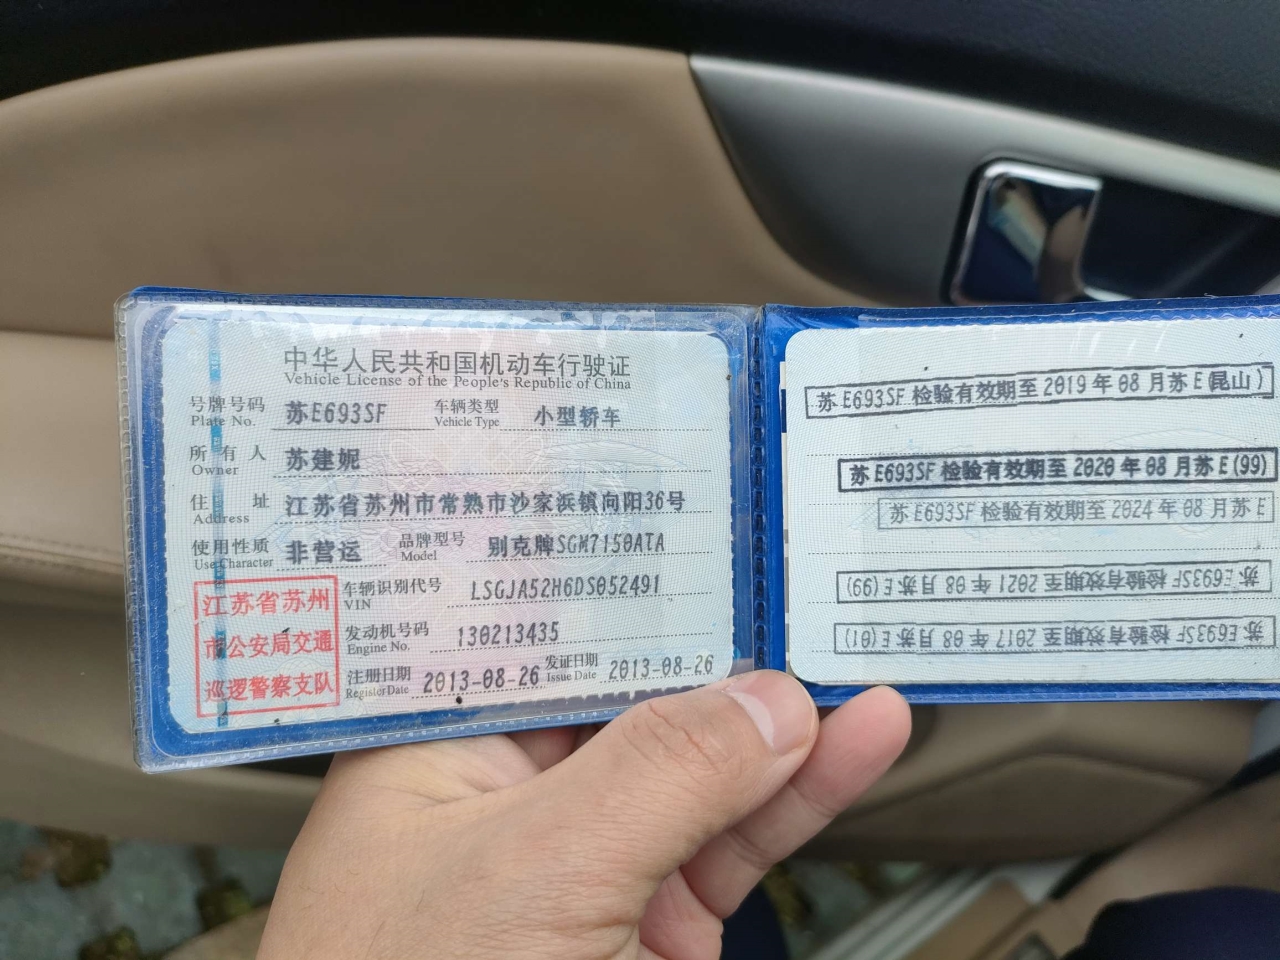 中华人民共和国机动车行驶证
Vehicle License of the People's Republic of China
号牌号码 苏E693SF 车辆类型 小型轿车
Plate No. Vehicle Type
所有人 苏建妮
Owner
住址 江苏省苏州市常熟市沙家浜镇向阳36号
Address
使用性质 非营运 品牌型号 别克牌SGM7150ATA
Use Character Model
江苏省苏州
市公安局交通
巡逻警察支队
车辆识别代号 LSGJA52H6DS052491
VIN
发动机号码 130213435
Engine No.
注册日期 2013-08-26 发证日期 2013-08-26
Register Date Issue Date
苏E693SF 检验有效期至2019年08月苏E(昆山)
苏E693SF 检验有效期至2020年08月苏E(99)
苏E693SF 检验有效期至2024年08月苏E
苏E693SF 检验有效期至2021年08月苏E(99)
苏E693SF 检验有效期至2017年08月苏E(01)